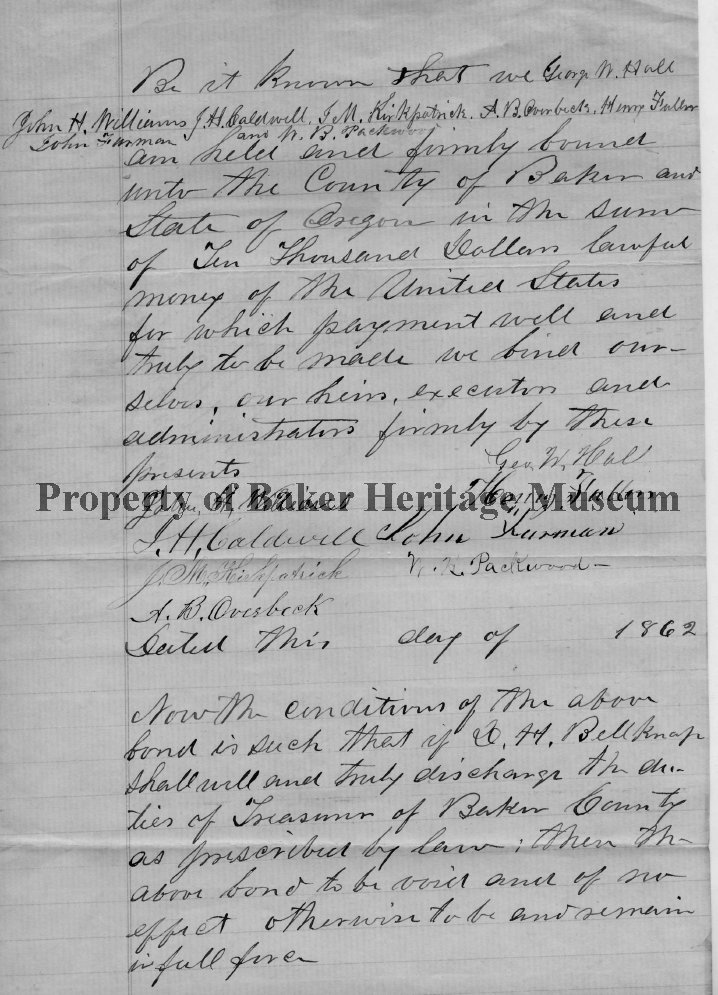 Be it known that we George W. Hall
John H. Williams J. H. Caldwell, J. M. Kirkpatrick, A. B. Overbeck, Henry Fuller
John Furman and W. H. Packwood
am held and firmly bound
unto the County of Baker and
State of Oregon in the sum
of Ten Thousand Dollars lawful
money of the United States
for which payment well and
truly to be made we bind our-
selves, our heirs, executors and
administrators firmly by these
presents Geo. W. Hall
John H. Williams Henry Fuller
Property of Baker Heritage Museum
J. H. Caldwell John Furman
J. M. Kirkpatrick W. H. Packwood
A. B. Overbeck
Dated this day of 1862
Now the conditions of the above
bond is such that if D. H. Bellknap
shall will and truly discharge the du-
ties of Treasurer of Baker County
as prescribed by law; then the
above bond to be void and of no
effect otherwise to be and remain
in full force